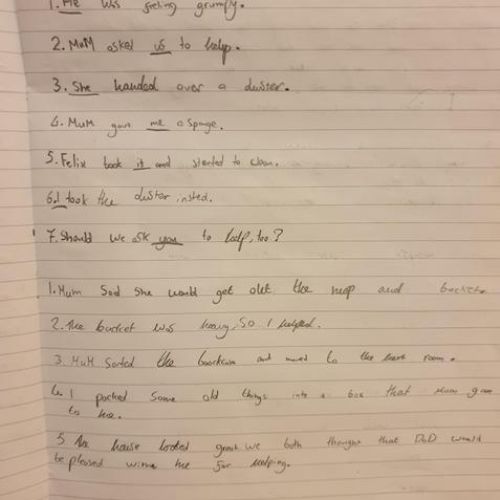 1. He was feeling grumpy.
2. MuM asked us to help.
3. She handed over a duster.
4. MuM gave me a sponge.
5. Felix took it and started to clean.
6. I took the duster insted.
7. Should we ask you to help, too?
1. Mum Said She would get out the mop and bucket.
2. The bucket was heavy, So I helped.
3. MuM Sorted the and moved to the room.
4. I packed Some old things into a box that Mum gave
to me.
5 The house looked great we both thought that DaD would
be pleased me for helping.